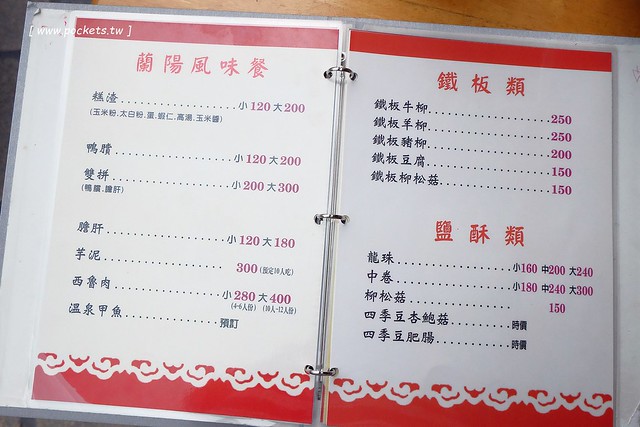 [ www.pockets.tw ]
蘭陽風味餐
糕渣....................小120大200
(玉米粉.太白粉.蛋.蝦仁.高湯.玉米醬)
鴨賸....................小120大200
雙拼....................小200大300
(鴨賸、膽肝)
膽肝....................小120大180
芋泥.................... 300(預定10人吃)
西魯肉....................小280大400
(4~6人份) (10人~12人份)
溫泉甲魚....................預訂
鐵板類
鐵板牛柳....................250
鐵板羊柳....................250
鐵板豬柳....................200
鐵板豆腐....................150
鐵板柳松菇....................150
鹽酥類
龍珠....................小160 中200 大240
中卷....................小180 中240 大300
柳松菇.................... 150
四季豆杏鮑菇..........時價
四季豆肥腸..........時價